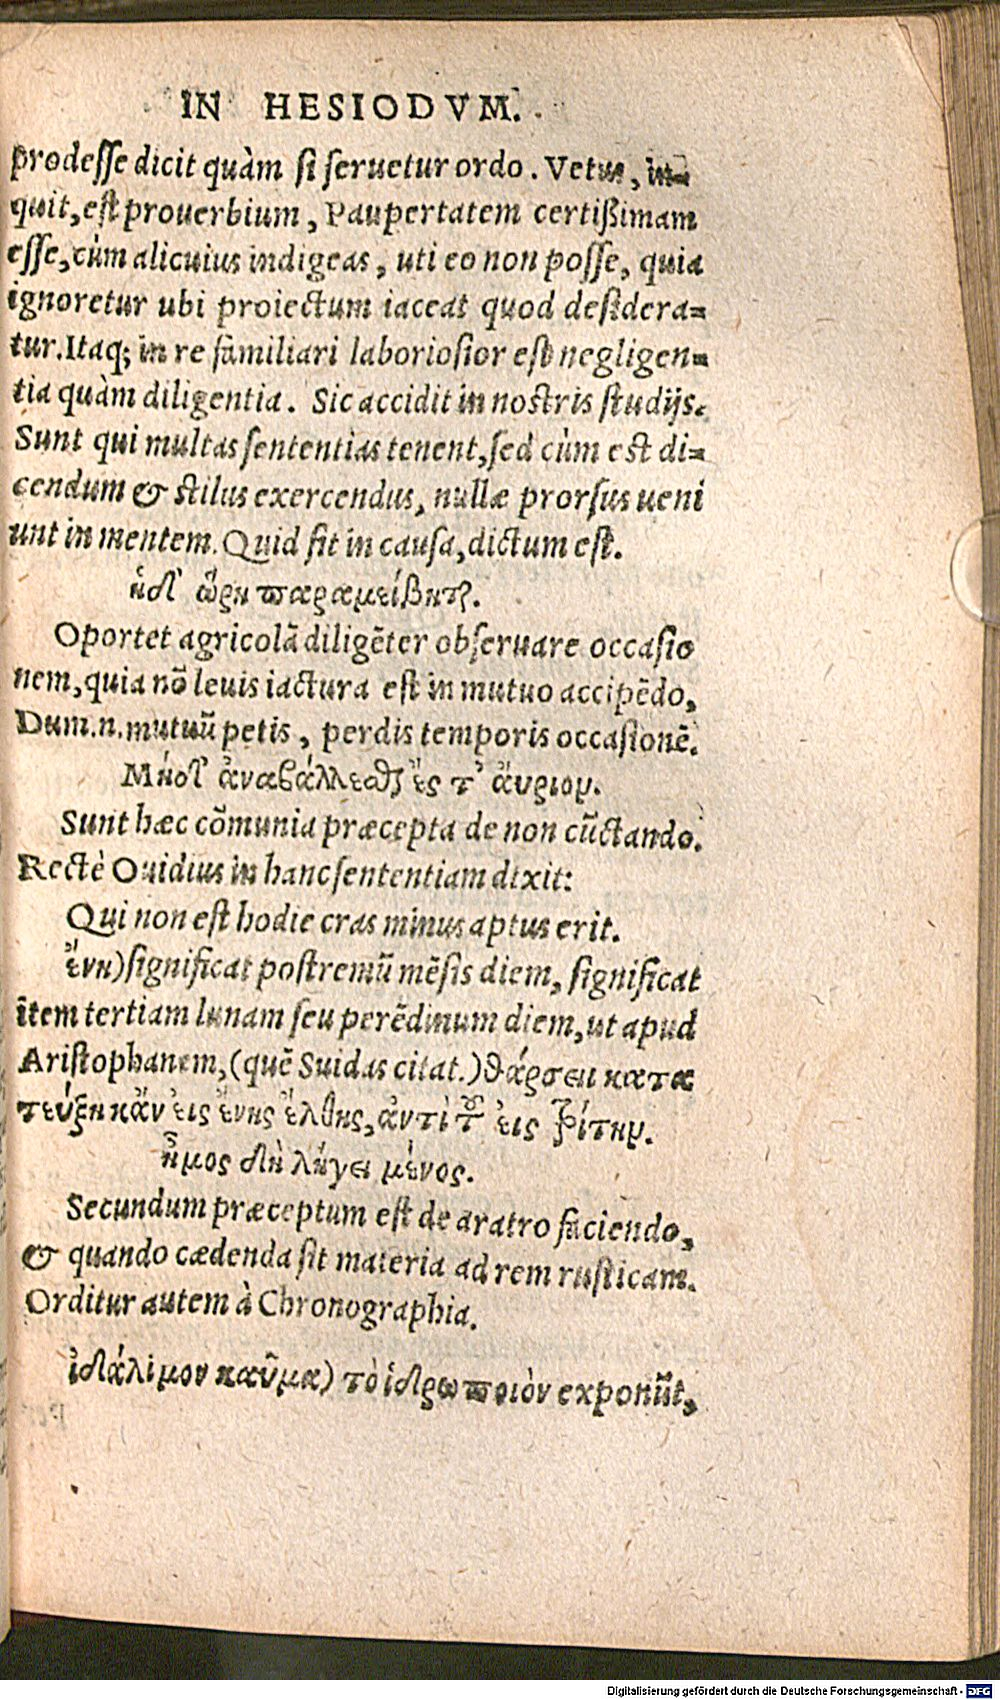 IN HESIODVM.
prodesse dicit quàm si seruetur ordo. Vetus, in-
quit, est prouerbium, Paupertatem certißimam
esse, cùm alicuius indigeas, uti eo non posse, quia
ignoretur ubi proiectum iaceat quod desidera-
tur. Itaq; in re familiari laboriosior est negligen-
tia quàm diligentia. Sic accidit in nostris studijs.
Sunt qui multas sententias tenent, sed cùm est di-
cendum & stilus exercendus, nullæ prorsus ueni
unt in mentem. Quid sit in causa, dictum est.
ἡδ' ὥρη παραμείβηται.
Oportet agricolā diligēter obseruare occasio
nem, quia nō leuis iactura est in mutuo accipēdo,
Dum.n.mutuū petis, perdis temporis occasionē.
Μηδ' ἀναβάλλεσθαι ἔς τ' ἄυριον.
Sunt hæc cōmunia præcepta de non cūctando.
Rectè Ouidius in hanc sententiam dixit:
Qui non est hodie cras minus aptus erit.
ἔνη) significat postremū mēsis diem, significat
item tertiam lunam seu perēdinum diem, ut apud
Aristophanem, (quē Suidas citat.) θάρσει κατα
τεύξη κἂν εἰς ἔνης ἔλθης, ἀντὶ τοῦ εἰς τρίτην.
ἦμος δὴ λήγει μένος.
Secundum præceptum est de aratro faciendo,
& quando cædenda sit materia ad rem rusticam.
Orditur autem à Chronographia.
ἰδάλιμον καῦμα) τὸ ἱδρωποιὸν exponūt,
Digitalisierung gefördert durch die Deutsche Forschungsgemeinschaft - DFG